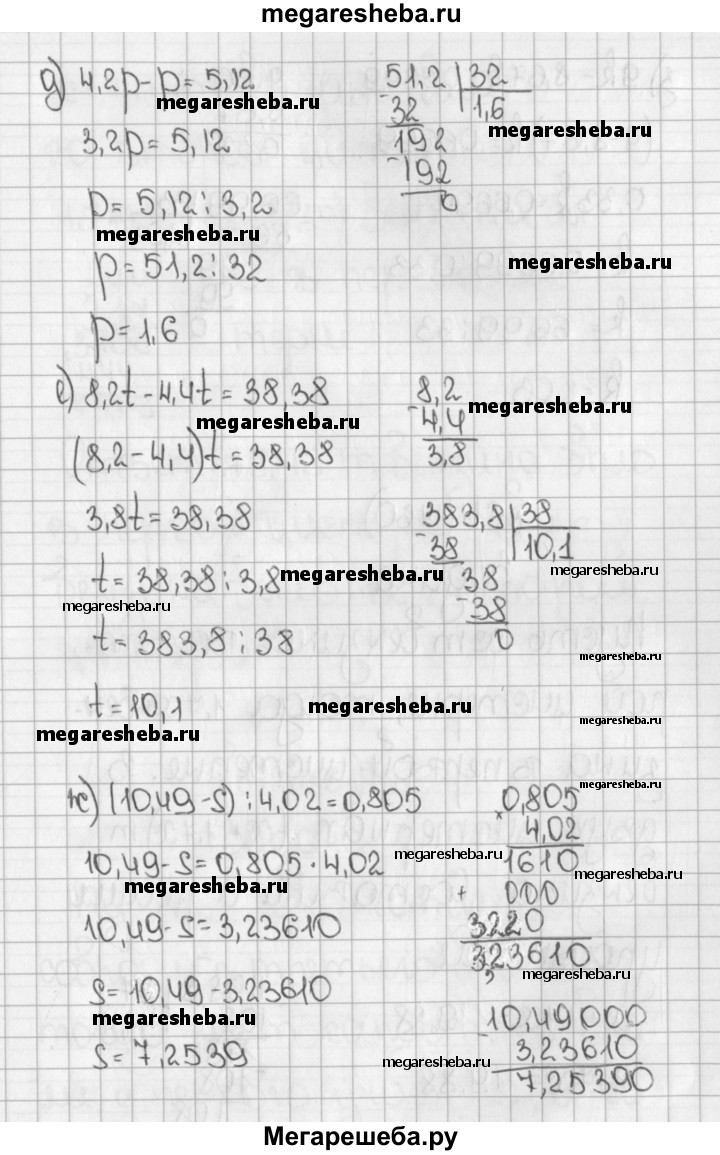 megaresheba.ru
д) 4,2p - p = 5,12
megaresheba.ru
3,2p = 5,12
p = 5,12 : 3,2
megaresheba.ru
p = 51,2 : 32
p = 1,6
51,2 | 32
- 32 | 1,6
192
- 192
0
megaresheba.ru
megaresheba.ru
е) 8,2t - 4,4t = 38,38
megaresheba.ru
(8,2 - 4,4)t = 38,38
3,8t = 38,38
t = 38,38 : 3,8
megaresheba.ru
megaresheba.ru
t = 383,8 : 38
t = 10,1
megaresheba.ru
8,2
- 4,4
3,8
megaresheba.ru
383,8 | 38
- 38 | 10,1
38
- 38
0
megaresheba.ru
megaresheba.ru
megaresheba.ru
megaresheba.ru
ж) (10,49 - s) : 4,02 = 0,805
10,49 - s = 0,805 · 4,02
megaresheba.ru
10,49 - s = 3,23610
s = 10,49 - 3,23610
megaresheba.ru
s = 7,2539
megaresheba.ru
0,805
× 4,02
1610
+ 000
3220
3,23610
megaresheba.ru
megaresheba.ru
megaresheba.ru
10,49000
- 3,23610
7,25390
megaresheba.ru
Мегарешеба.ру